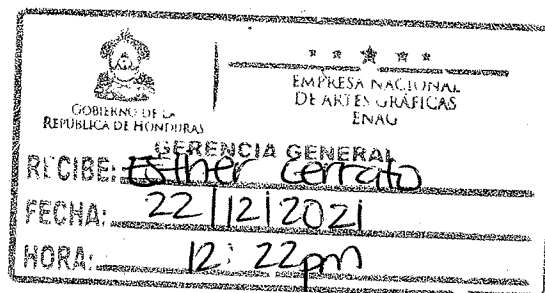 GOBIERNO DE LA
REPÚBLICA DE HONDURAS
EMPRESA NACIONAL
DE ARTES GRÁFICAS
ENAG
GERENCIA GENERAL
RECIBE: Esther Cerrato
FECHA: 22/12/2021
HORA: 12:22pm